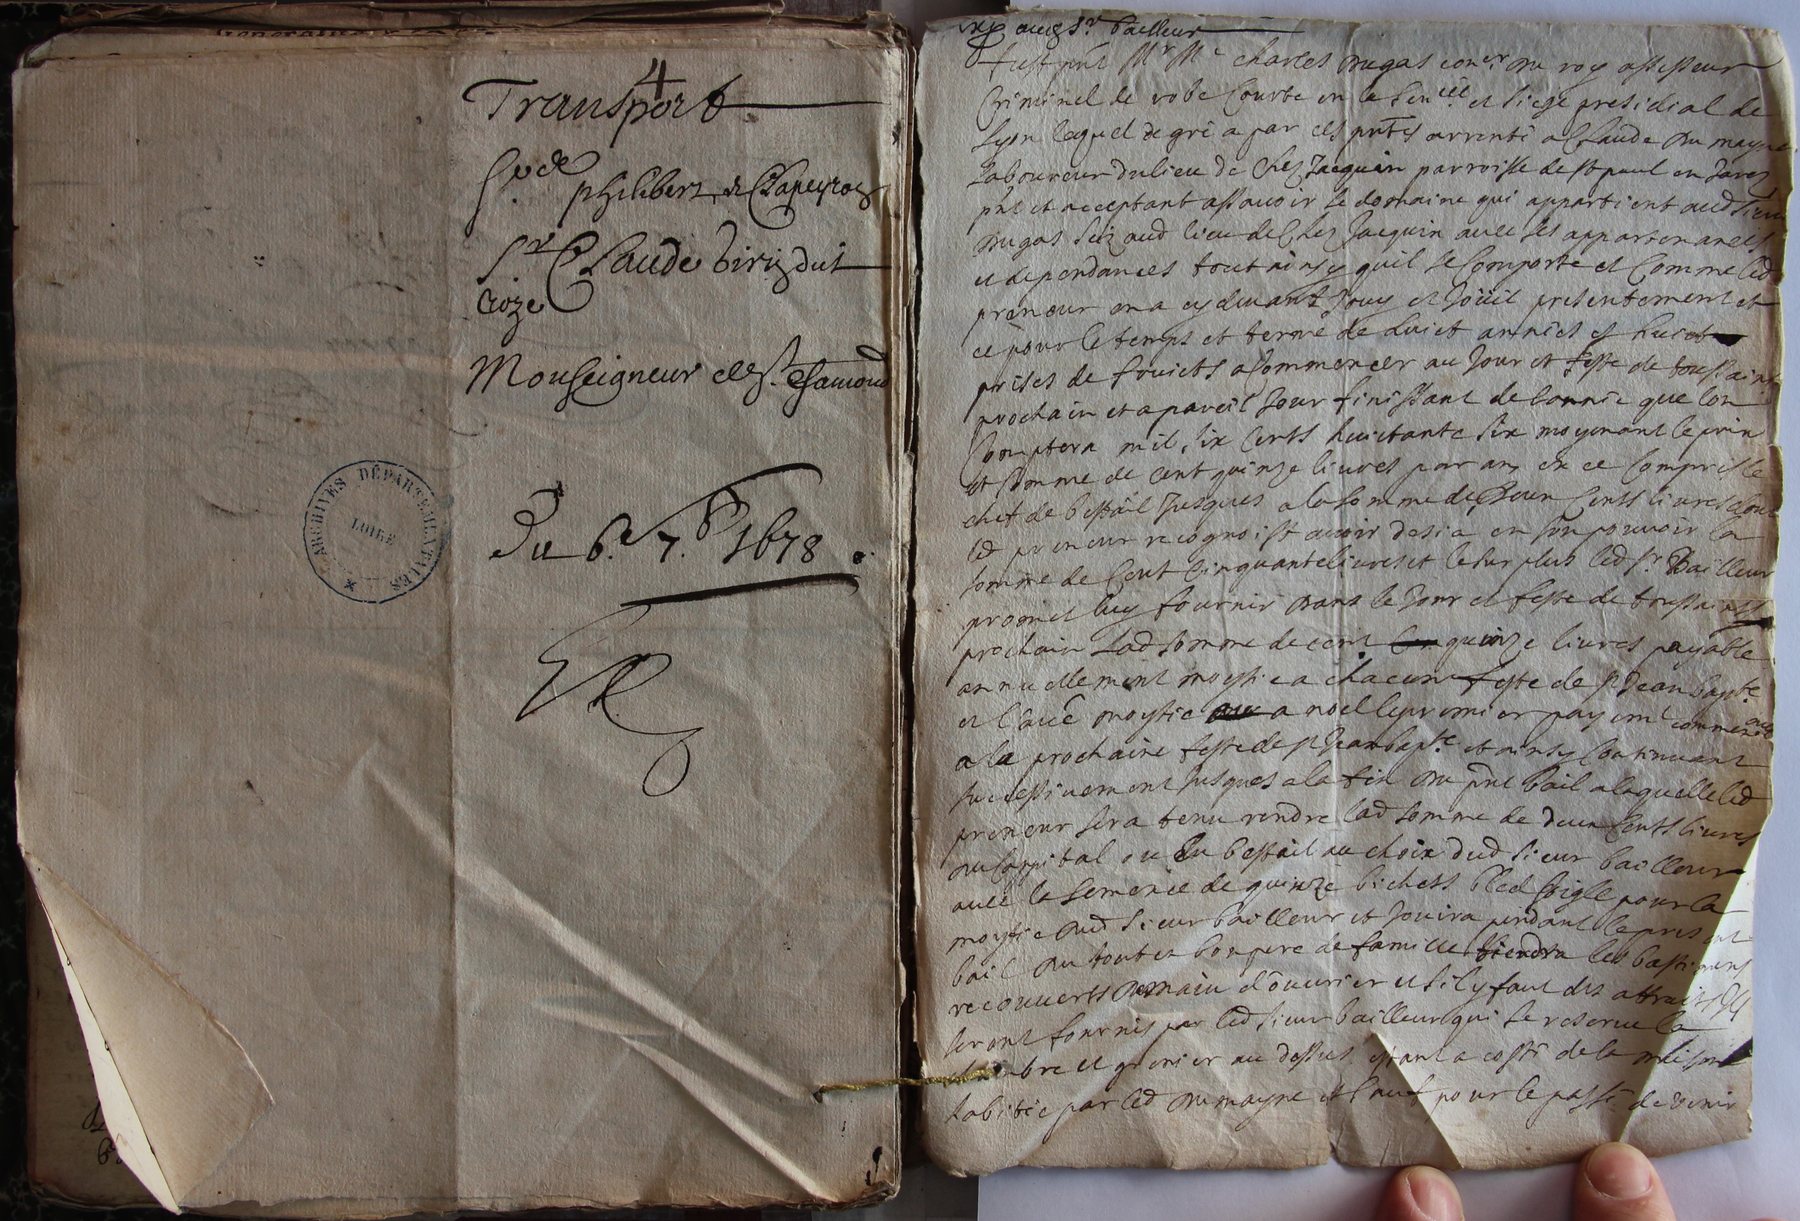 4
Transport
Philibert de Chapeyron
Sr. Claude dit
Croze
Monseigneur de St. Chamond
Du 6e 7b 1678
ARCHIVES DÉPARTEMENTALES
LOIRE
exp audt Sr. bailleur
Fust pnt Mr Me charles Dugas coner. du roy assesseur
Criminel de robe Courte en la Sencée et siege presidial de
Lyon lequel de gré a par ces pntes arrenté a Claude Du mayne
laboureur du lieu de Chez Jacquin parroisse de st paul en Jarez
pnt et acceptant assavoir le domaine qui appartient aud sieur
Dugas sciz aud lieu de Chez Jacquin avec ses appartenances
et dependances tout ainsy quil se Comporte et Comme led
preneur en a cy devant Jouy et Jouit presentement et
ce pour le temps et terme de huict années et huict
prises de fruicts a Commencer au Jour et feste de toussaints
prochain et a pareil Jour finissant de lannée que lon
Comptera mil six Cents huictante six moyenant le prix
et somme de cent quinze livres par an en ce Compris le
chef de bestail Jusques a la somme de deux Cents livres dont
led preneur recognoist avoir desia en son pouvoir la
somme de Cent Cinquante livres et le surplus led sr. Bailleur
promet luy fournir dans le Jour et feste de toussaints
prochain lad somme de cent quinze livres payable
annuellement moytié a chacune feste de st Jean bapte
et l'autre moytié a noel le premier payemt commenceant
a la prochaine feste de st Jean bapte. et ainsy Continuant
successivement Jusques a la fin du pnt bail a laquelle led
preneur sera tenu rendre lad somme de deux Cents livres
du Cappital ou en bestail au choix dud sieur bailleur
avec la semence de quinze bichets bled seigle pour la
moytié dud sieur bailleur et Jouira pendant le present
bail du tout en bon pere de famille tiendra les bastiments
recouverts de main d'ouvrier et s'il y faut des attraits Ils
seront fournis par led sieur bailleur qui se reserve la
chambre et grenier au dessus estant a costé de la maison
habitée par led Dumayne et sauf pour le passé de venir